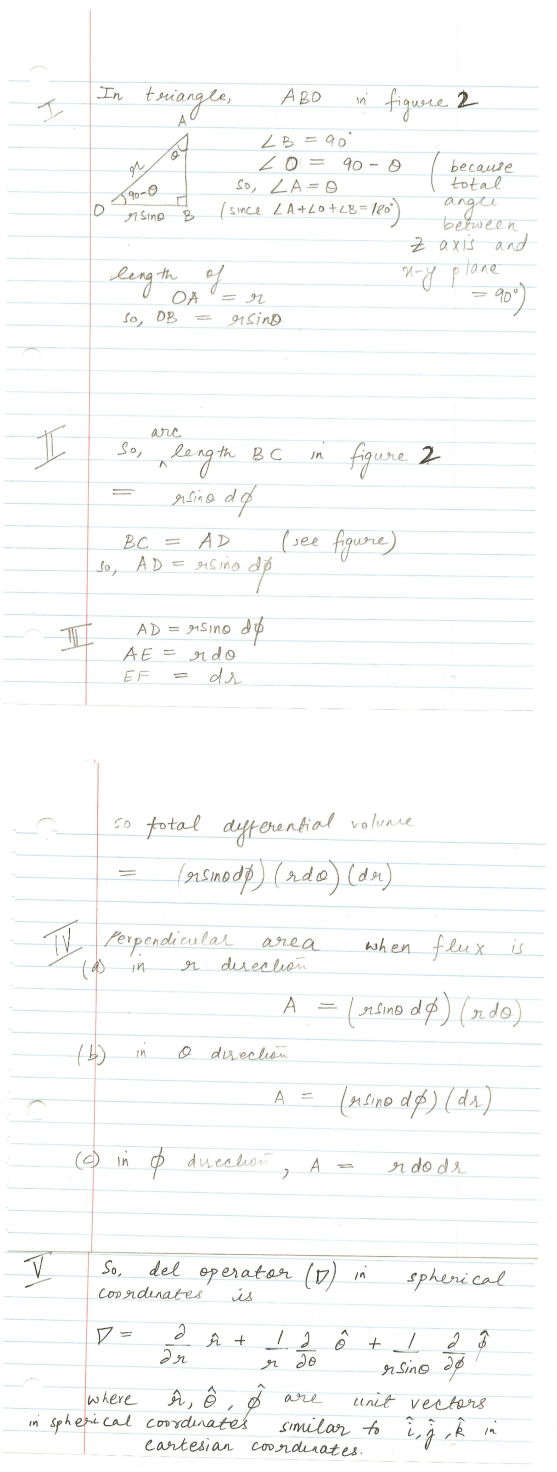 I
In triangle, ABO in figure 2
A
θ
r
90-θ
O
r sinθ
B
∠B = 90°
∠O = 90 - θ
so, ∠A = θ
(since ∠A+∠O+∠B=180°)
(because
total
angle
between
z axis and
x-y plane
= 90°)
length of
OA = r
so, OB = r sinθ
II
arc
So, ^ length BC in figure 2
= r sinθ dϕ
BC = AD (see figure)
so, AD = r sinθ dϕ
III
AD = r sinθ dϕ
AE = r dθ
EF = dr
so total differential volume
= (r sinθ dϕ) (r dθ) (dr)
IV Perpendicular area when flux is
(a) in r direction
A = (r sinθ dϕ) (r dθ)
(b) in θ direction
A = (r sinθ dϕ) (dr)
(c) in ϕ direction, A = r dθ dr
V
So, del operator (∇) in spherical
coordinates is
∇ = ∂/∂r r̂ + 1/r ∂/∂θ θ̂ + 1/(r sinθ) ∂/∂ϕ ϕ̂
where r̂, θ̂, ϕ̂ are unit vectors
in spherical coordinates similar to î, ĵ, k̂ in
cartesian coordinates.